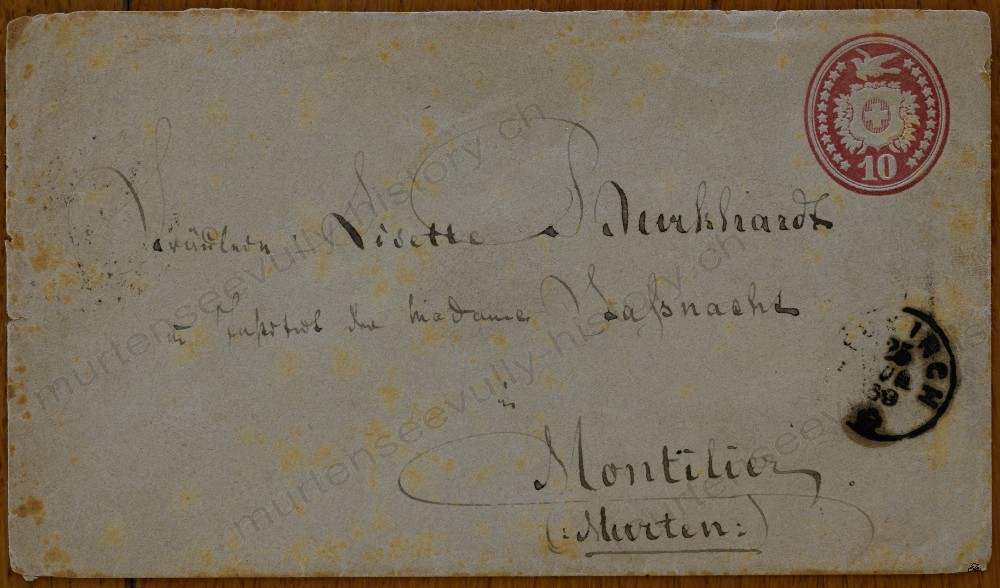 10
Fräulein Lisette Burkhardt
Madame Faßnacht
in
Montilier
(: Murten :)
25
69
murtenseevully-history.ch
murtenseevully-history.ch
murtenseevully-history.ch
murtenseevully-history.ch